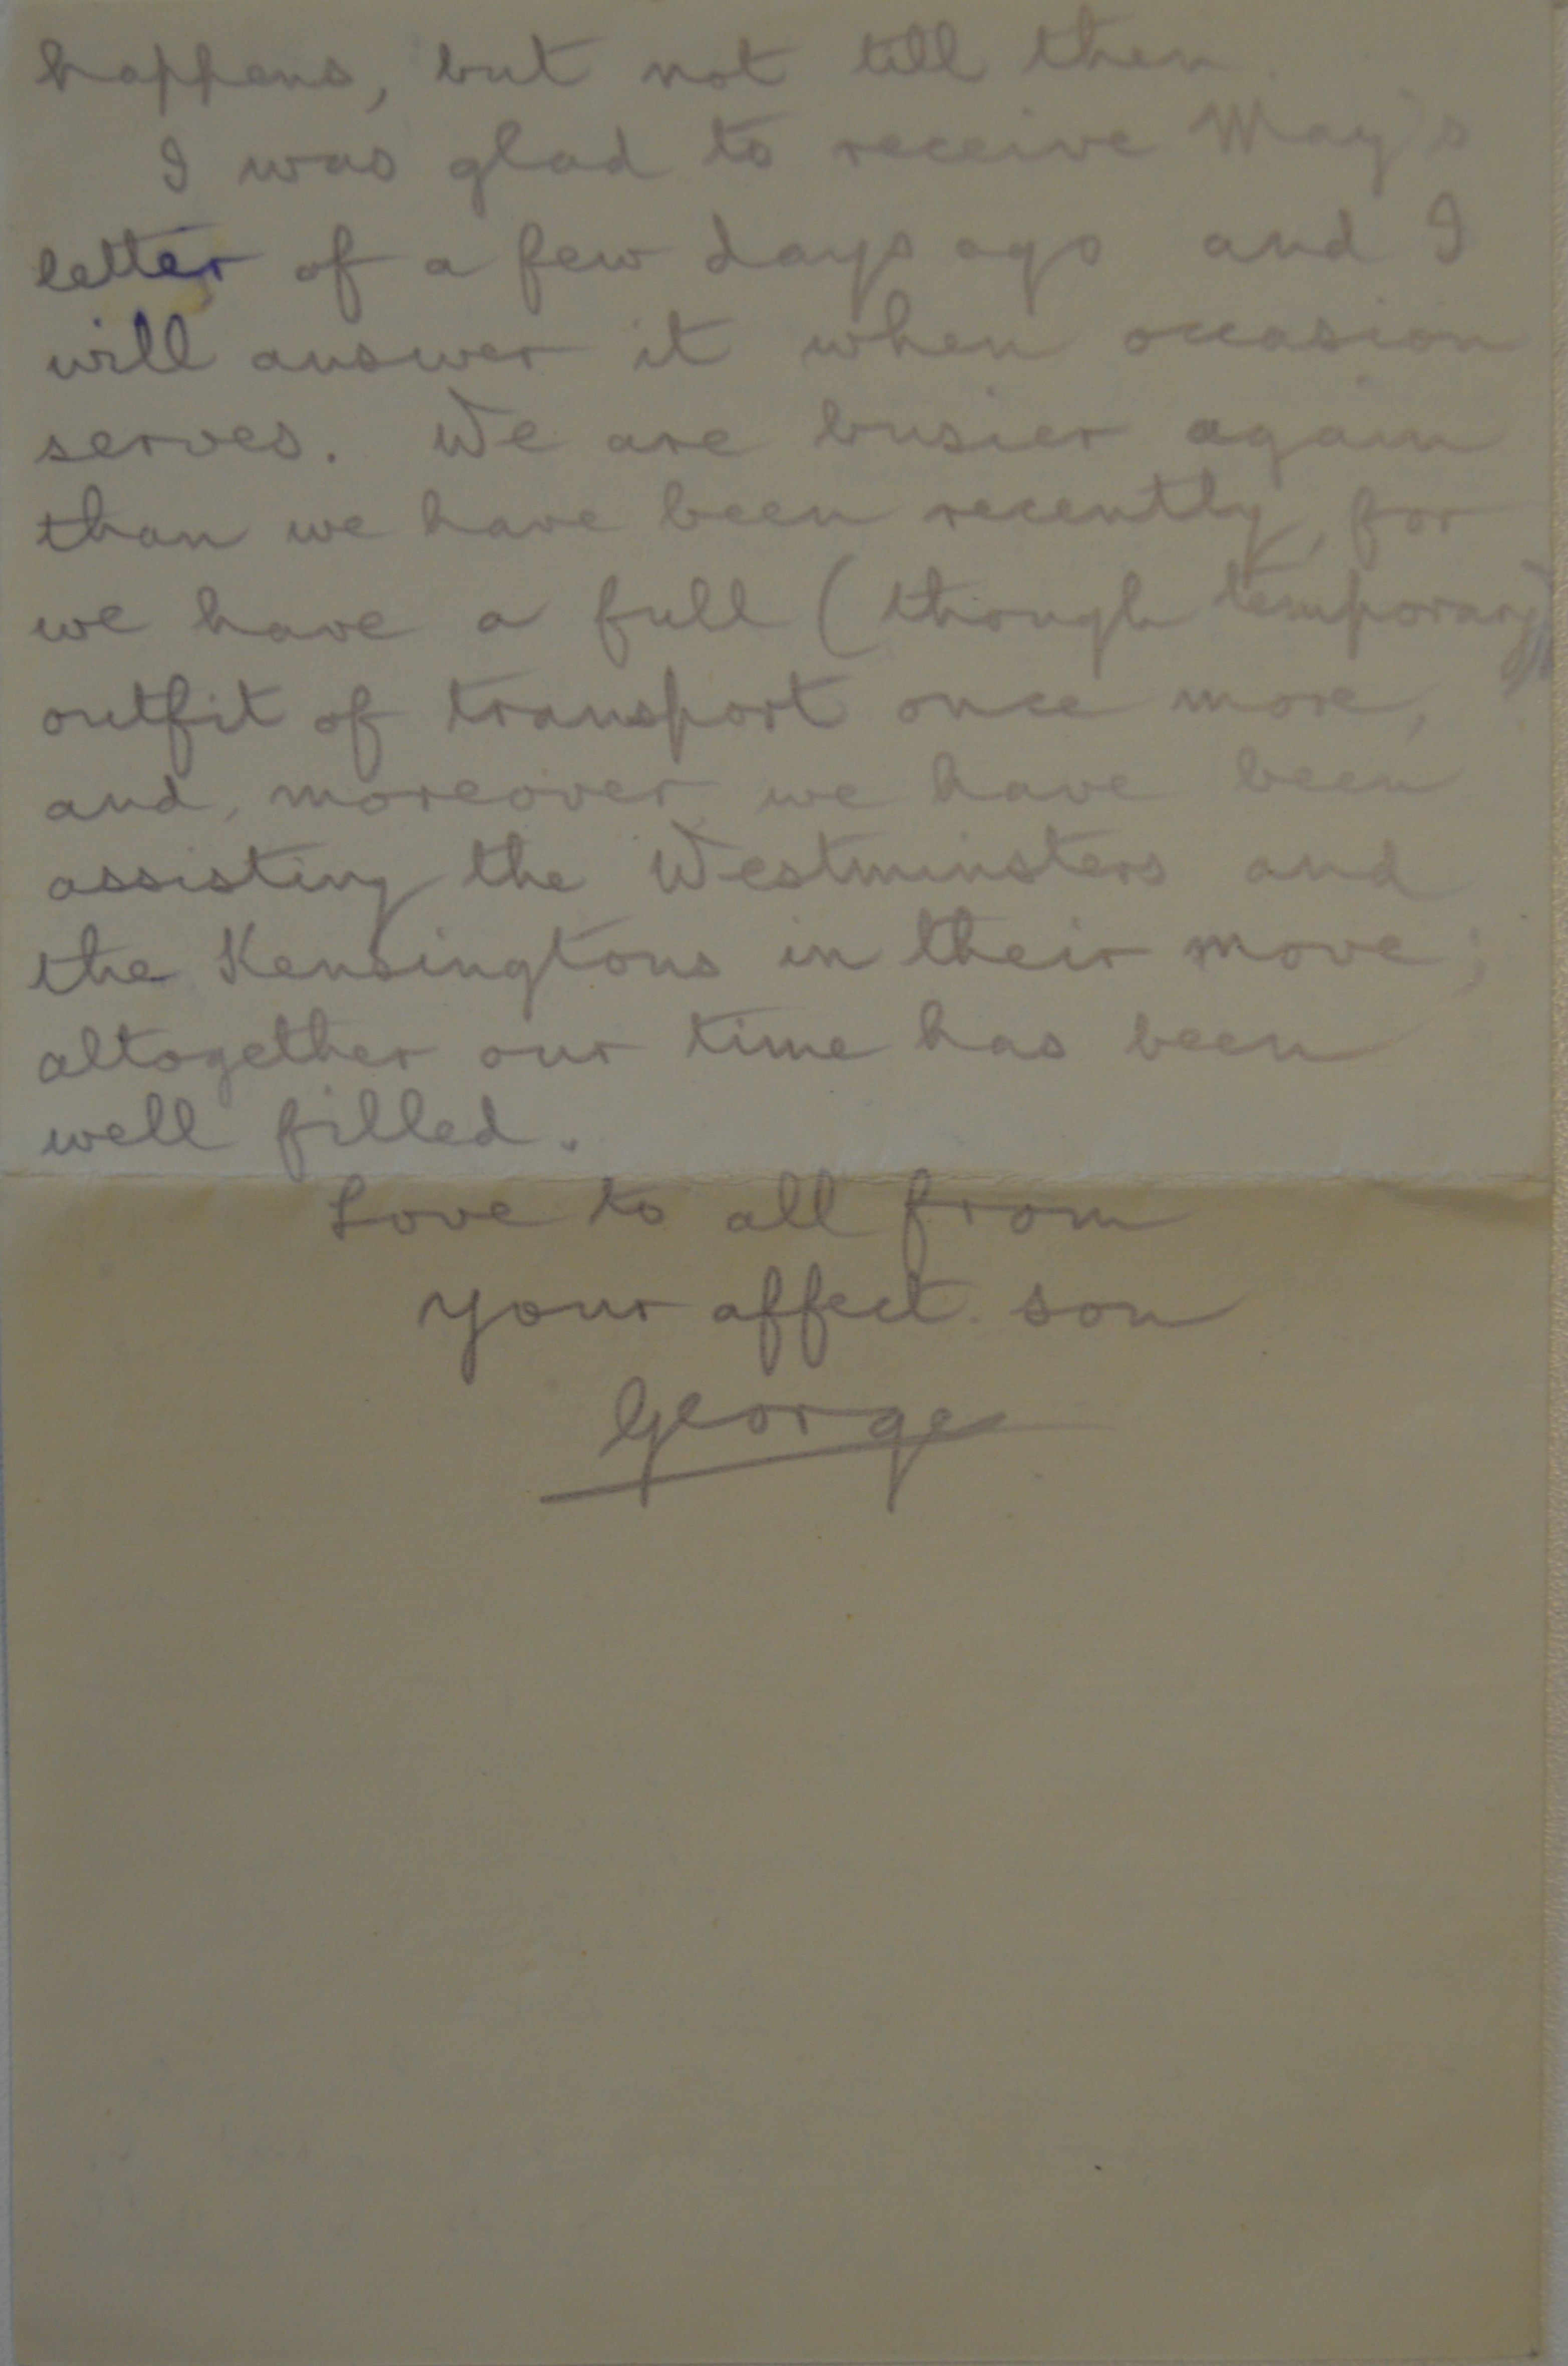 happens, but not till then.
I was glad to receive May's
letter of a few days ago and I
will answer it when occasion
serves. We are busier again
than we have been recently, for
we have a full (though temporary)
outfit of transport once more,
and, moreover, we have been
assisting the Westminsters and
the Kensingtons in their move;
altogether our time has been
well filled.
Love to all from
your affect. son
George